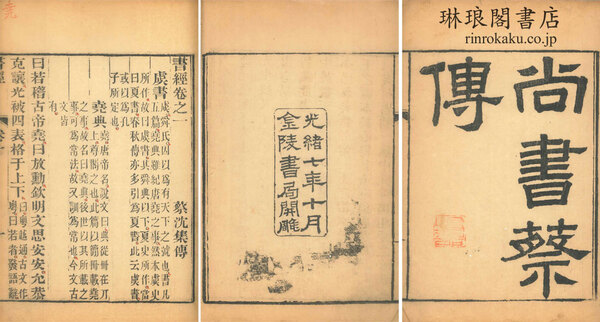 琳琅閣書店
rinrokaku.co.jp
尚書蔡
傳
光緒七年十月
金陵書局開雕
書經卷之一 蔡沈集傳
虞書 虞舜氏因以爲有天下之號也書凡
五篇堯典雖紀唐堯之事然本虞史
所作故曰虞書其舜典以下夏史所作當
曰夏書春秋傳亦多引爲夏書此云虞書
或以爲孔
子所定也
堯典 堯唐帝名說文曰典從冊在丌
上尊閣之也此篇以簡冊載堯
之事故名曰堯典後世以其所載之
事可爲常法故又訓爲常也今文古
文皆
有
曰若稽古帝堯曰放勳欽明文思安安允恭
克讓光被四表格于上下 曰粤越通古文作
粤曰若者發語辭